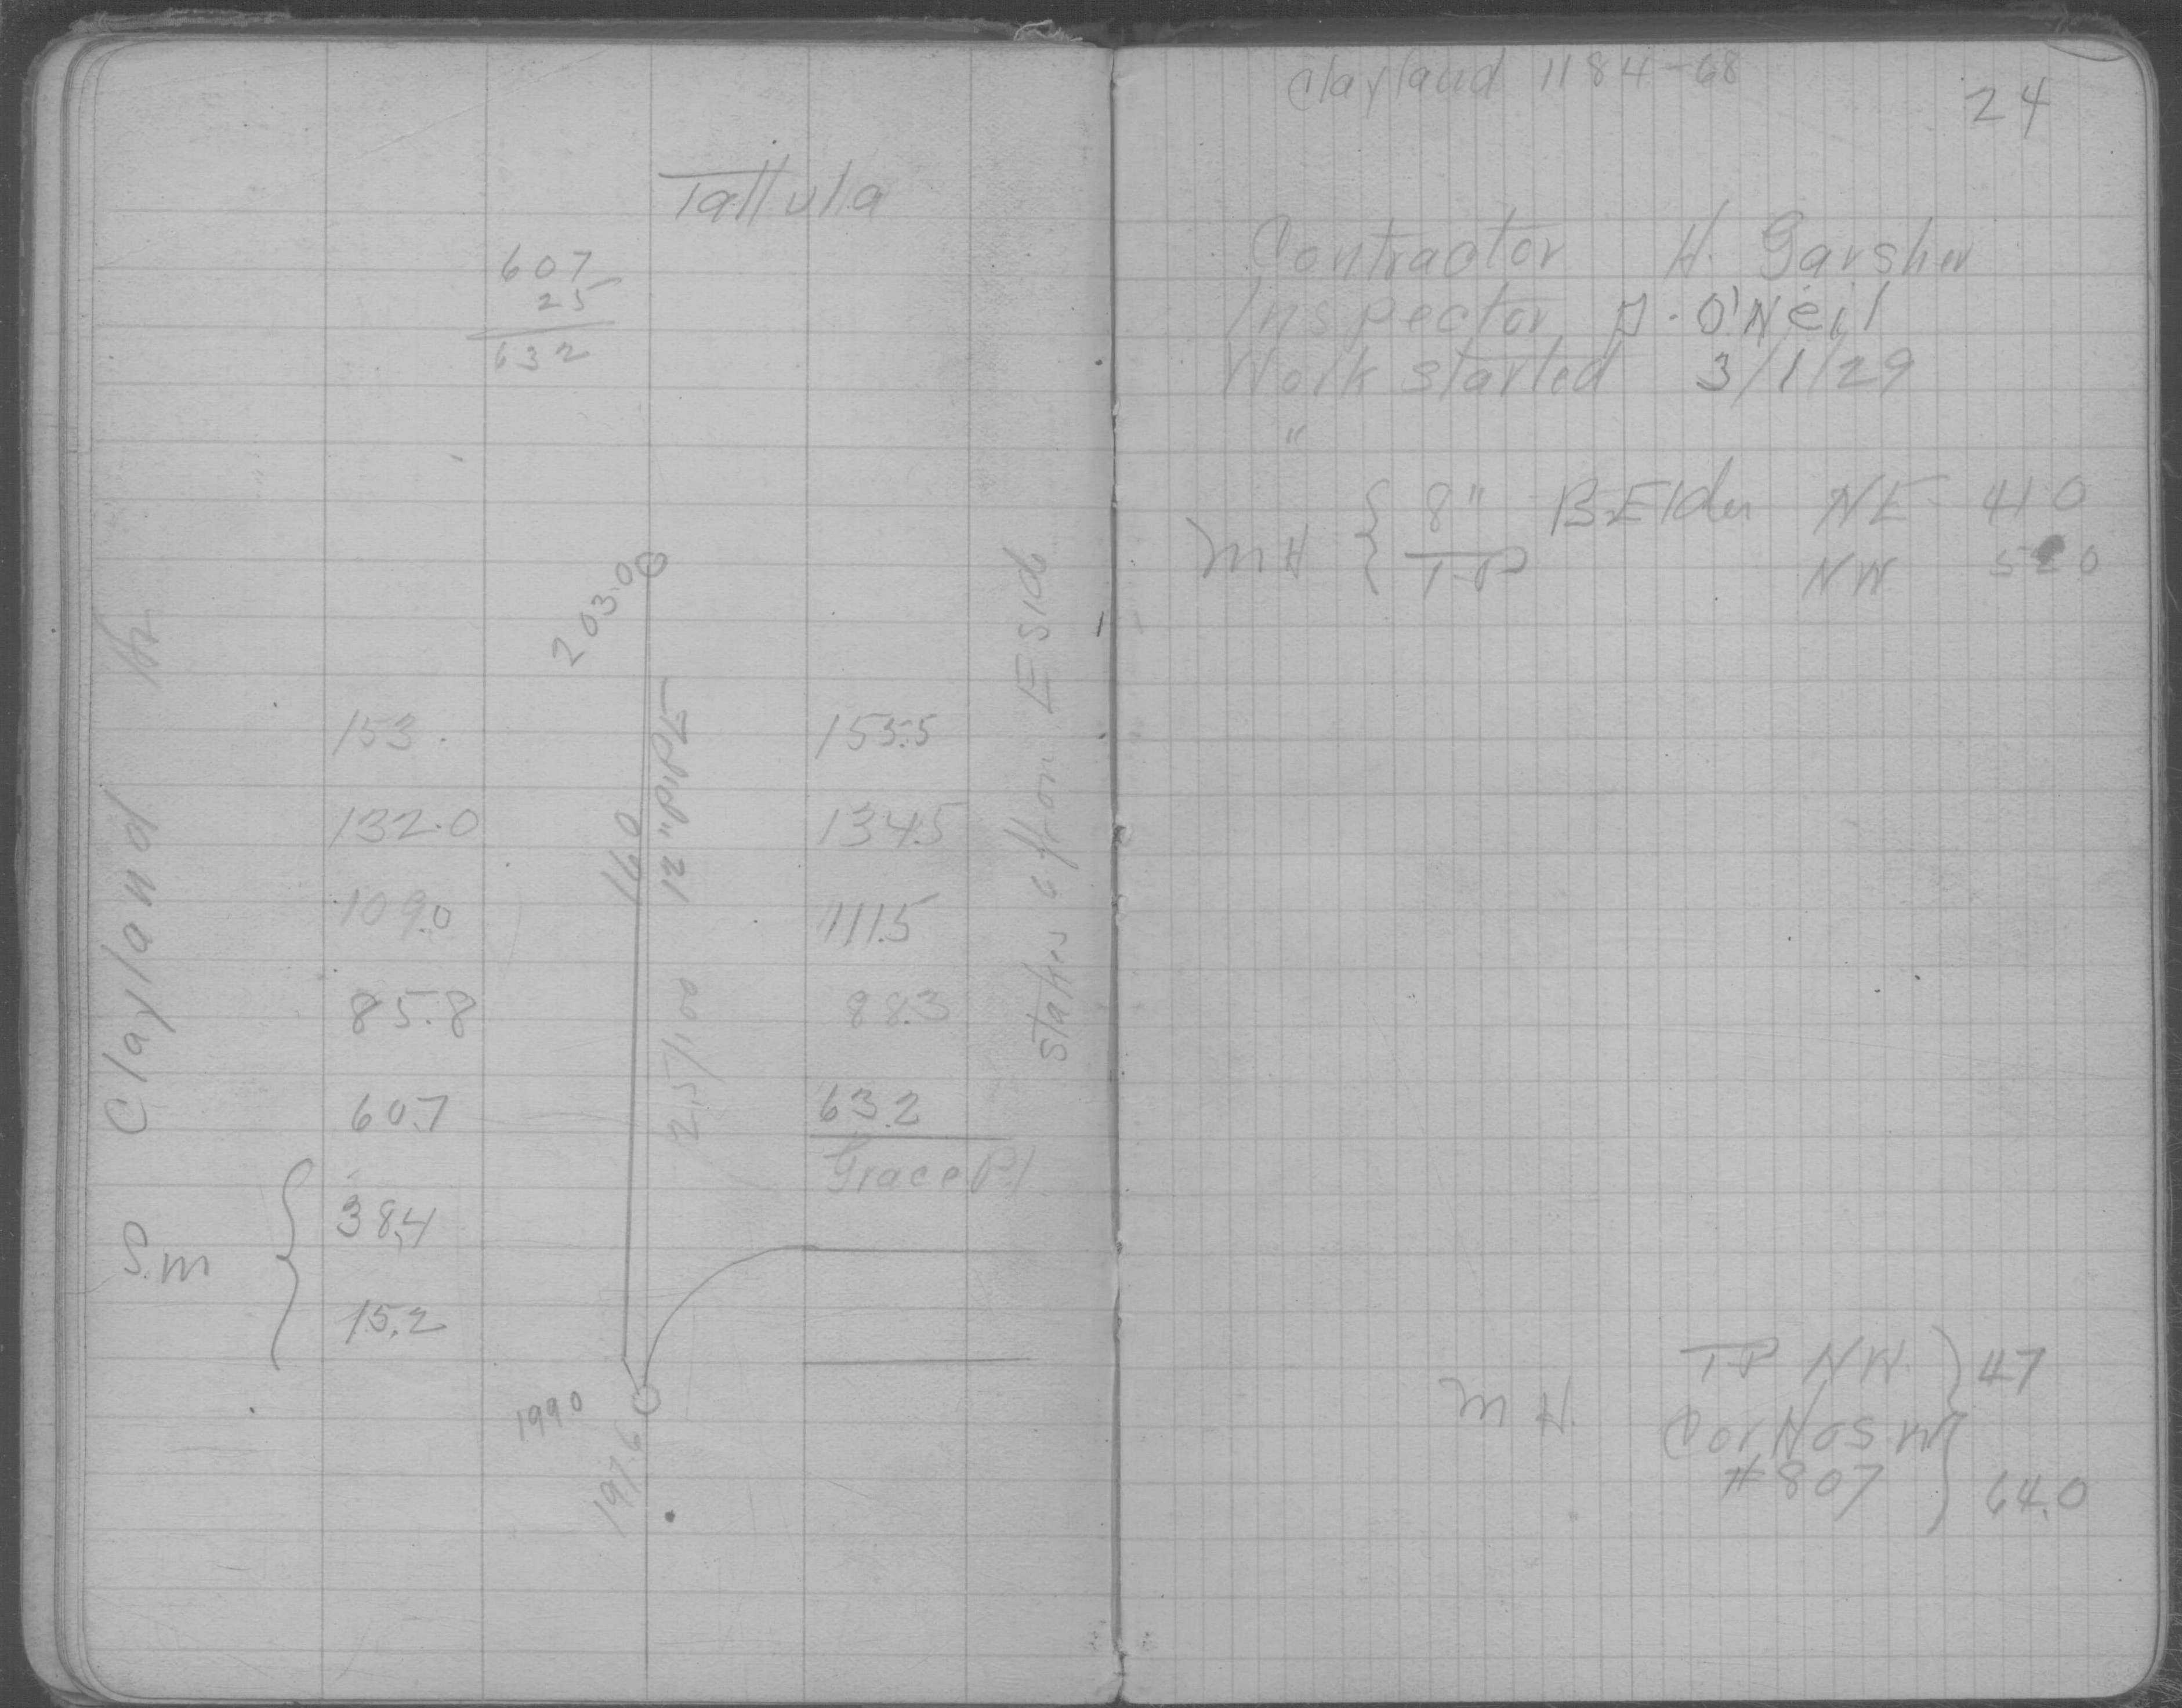 Tallula
607
25
632
203.0
153.
155.5
132.0
134.5
109.0
111.5
85.8
88.3
60.7
63.2
Grace Pl
38.4
15.2
S.m
Clayland
160
12" pipe
2.5/100
Stakes 6 ft on E Side
1990
197.6
Clayland 1184-68
24
Contractor H.
Inspector J. O'Neil
Work started 3/1/29
"
MH { 8" B-Elder NE 41.0
T-P NW
T-P NW } 47
MH.
#807 } 64.0